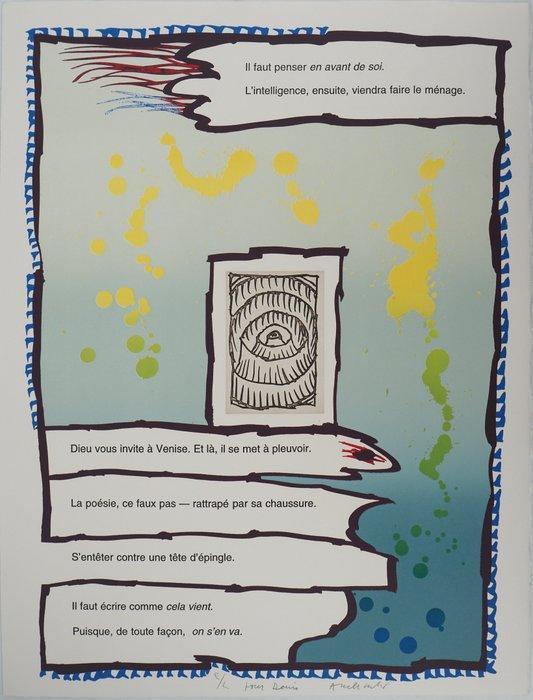 Il faut penser en avant de soi.
L'intelligence, ensuite, viendra faire le ménage.
Dieu vous invite à Venise. Et là, il se met à pleuvoir.
La poésie, ce faux pas — rattrapé par sa chaussure.
S'entêter contre une tête d'épingle.
Il faut écrire comme cela vient.
Puisque, de toute façon, on s'en va.